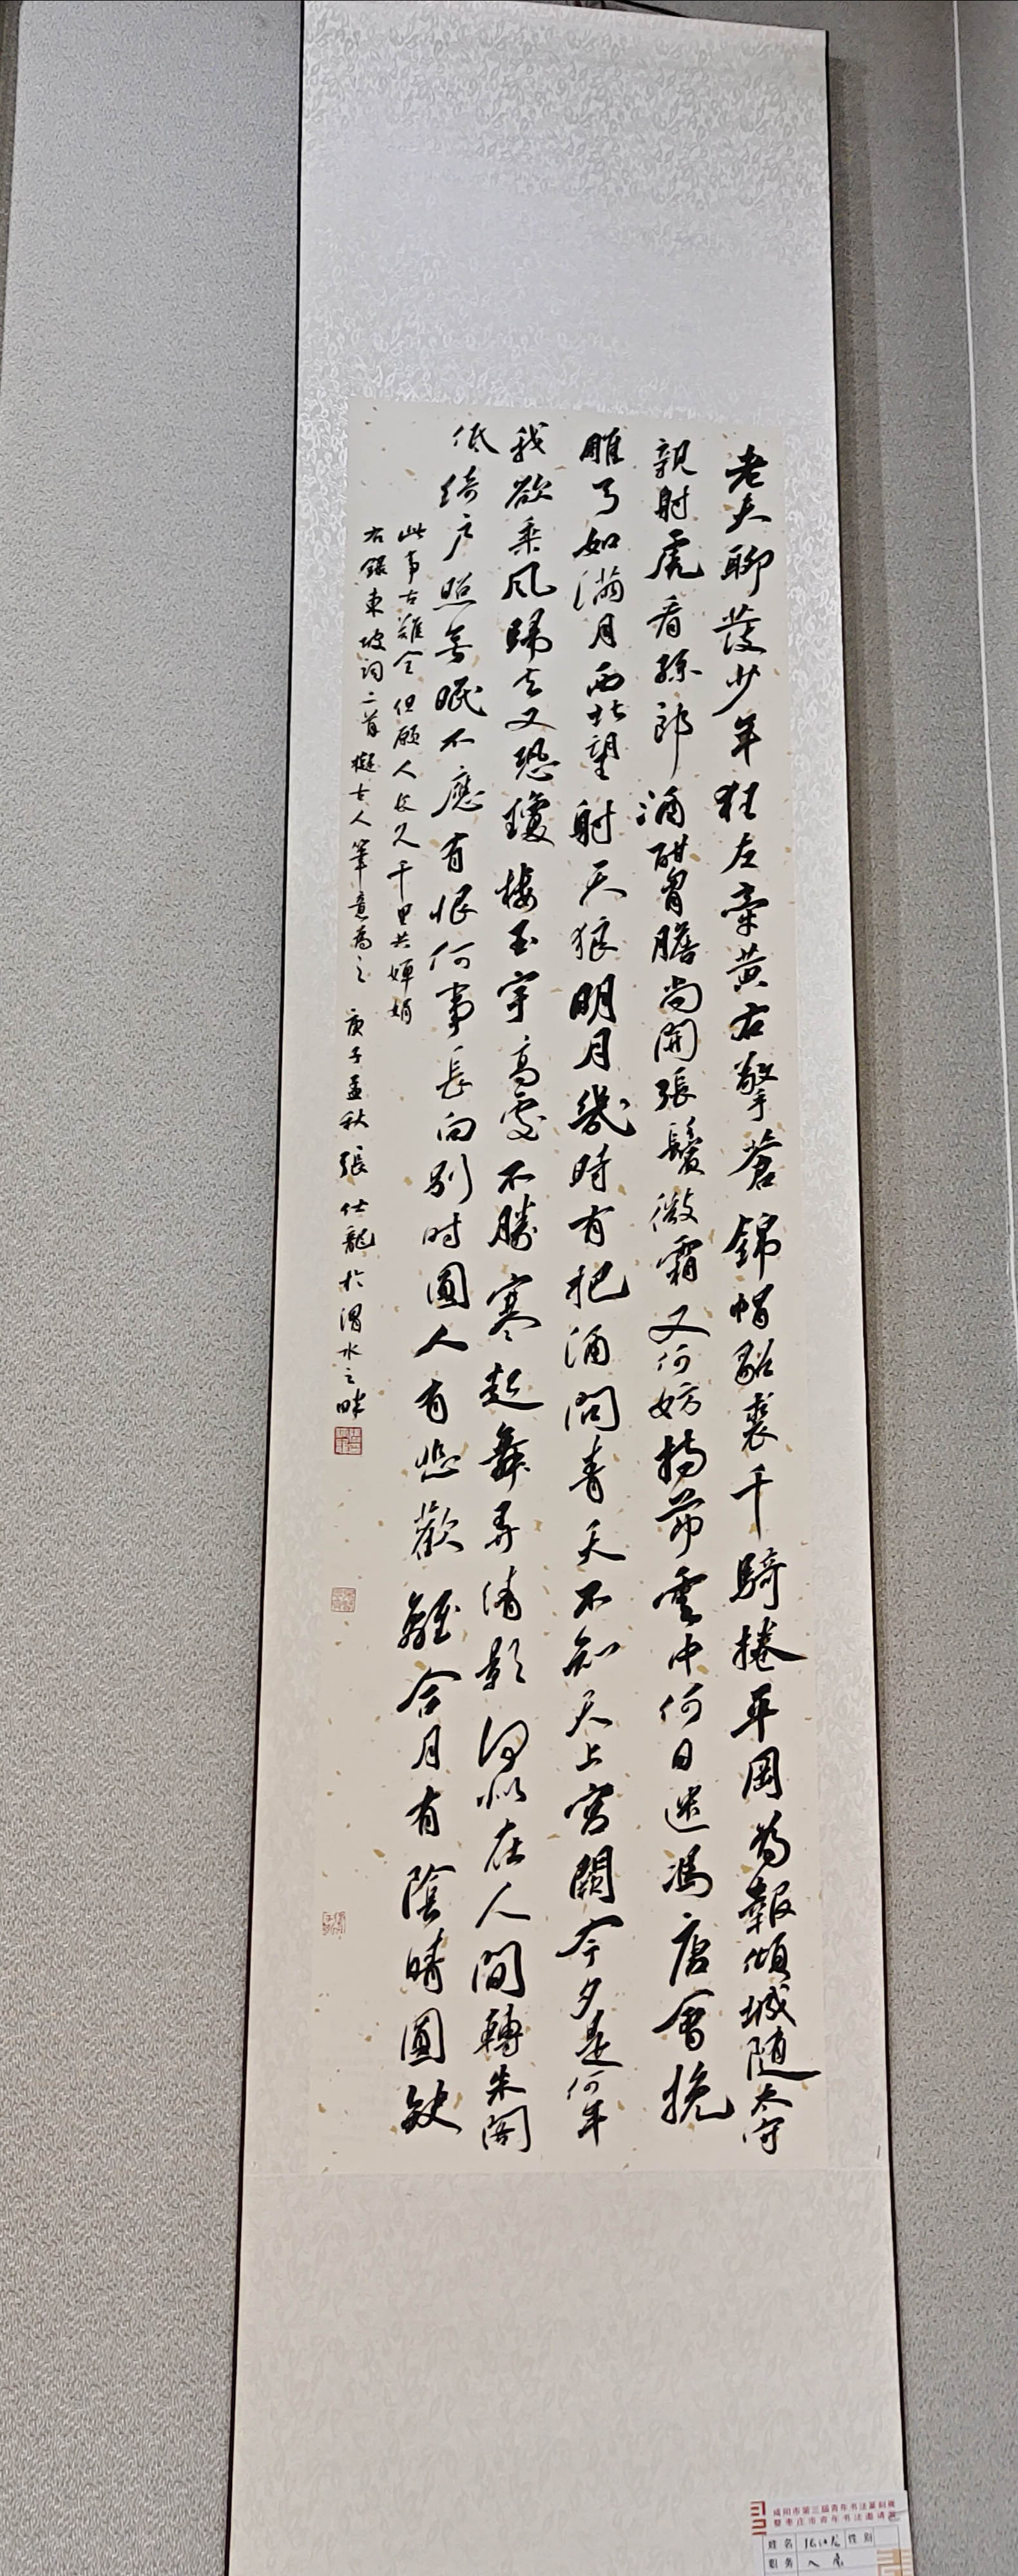 老夫聊發少年狂左牽黃右擎蒼錦帽貂裘千騎捲平岡為報傾城随太守
親射虎看孫郎酒酣胷膽尚開張鬢微霜又何妨持節雲中何日遣馮唐會挽
雕弓如滿月西北望射天狼明月幾時有把酒問青天不知天上宮闕今夕是何年
我欲乘風歸去又恐瓊樓玉宇高處不勝寒起舞弄清影何似在人間轉朱閣
低綺户照無眠不應有恨何事長向别时圓人有悲歡離合月有陰晴圓缺
此事古難全但願人長久千里共嬋娟
右録東坡詞二首擬古人筆意為之 庚子孟秋張仕龍於渭水之畔
咸阳市第三届青年书法篆刻展
暨枣庄市青年书法邀请展
姓名 张仕龙 性别
职务 入展